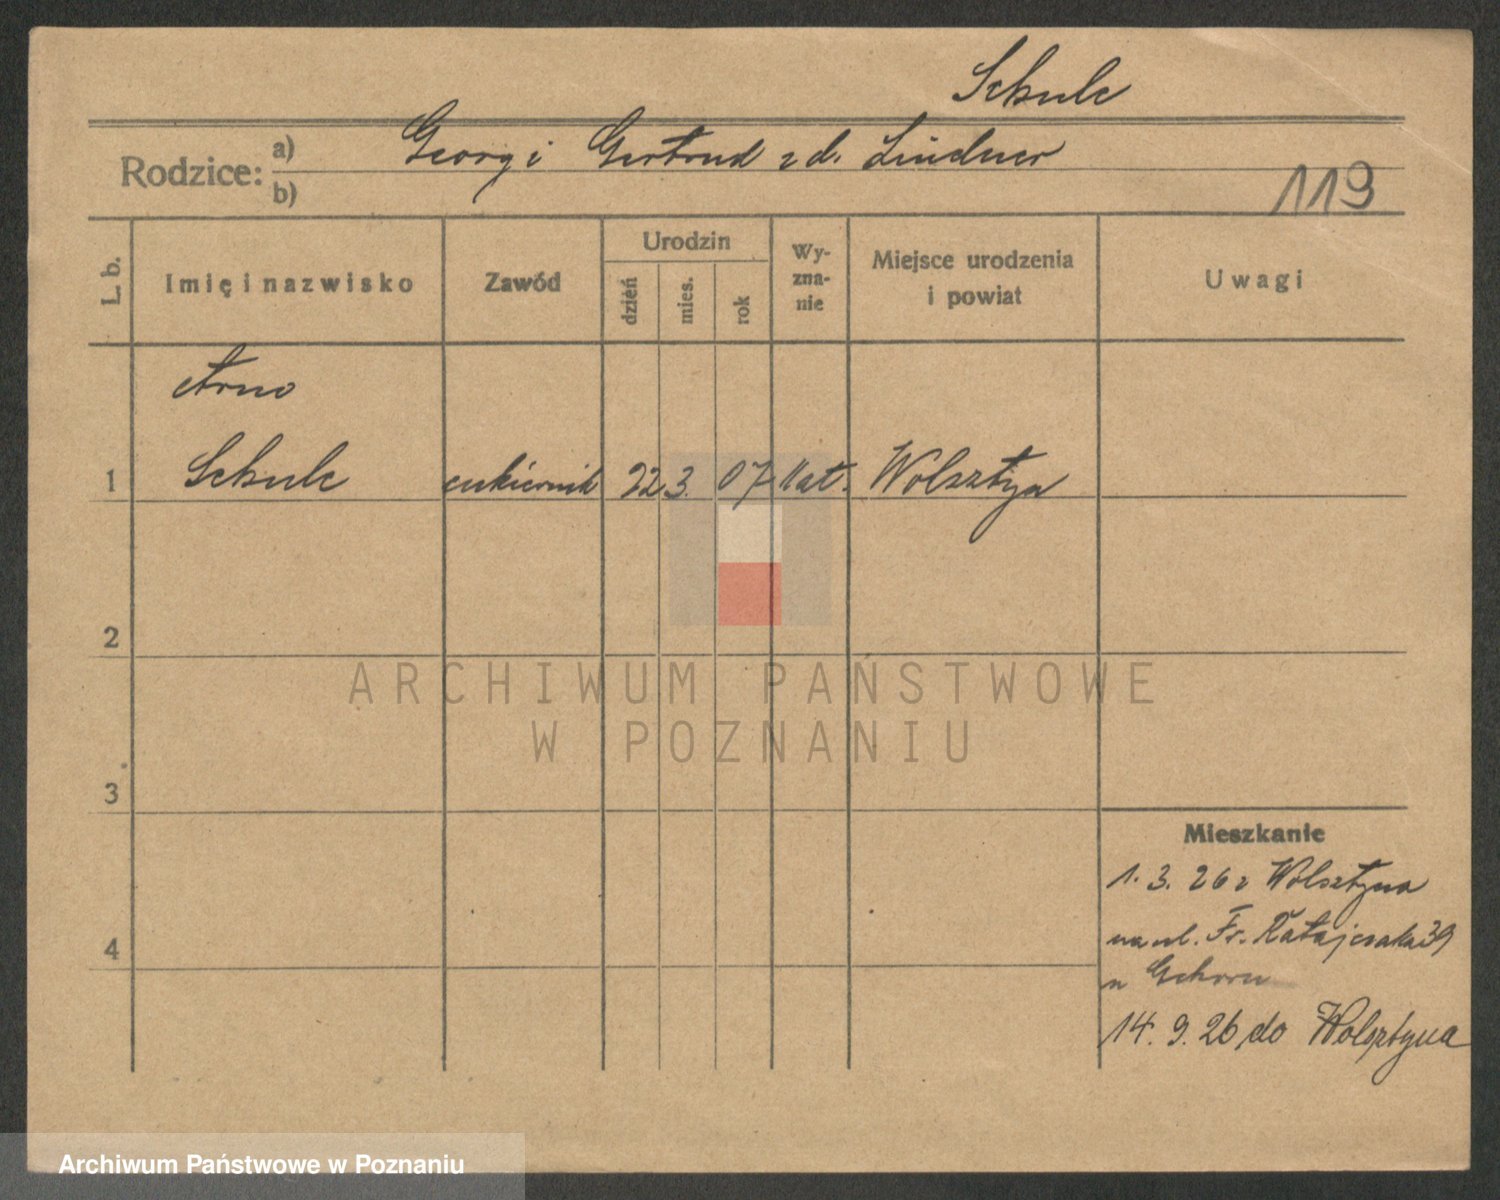 Schulc
Rodzice: a) Georg i Gertrud z d. Lindner
b)
119
L. b.
Imię i nazwisko
Zawód
Urodzin
dzień
mies.
rok
Wy-
zna-
nie
Miejsce urodzenia
i powiat
Uwagi
Arno
1 Schulc cukiernik 22 3. 07 kat. Wolsztyn
2
3
4
Mieszkanie
1. 3. 26 z Wolsztyna
na ul. Fr. Ratajczaka 39
u
14. 9. 26 do Wolsztyna
ARCHIWUM PAŃSTWOWE
W POZNANIU
Archiwum Państwowe w Poznaniu